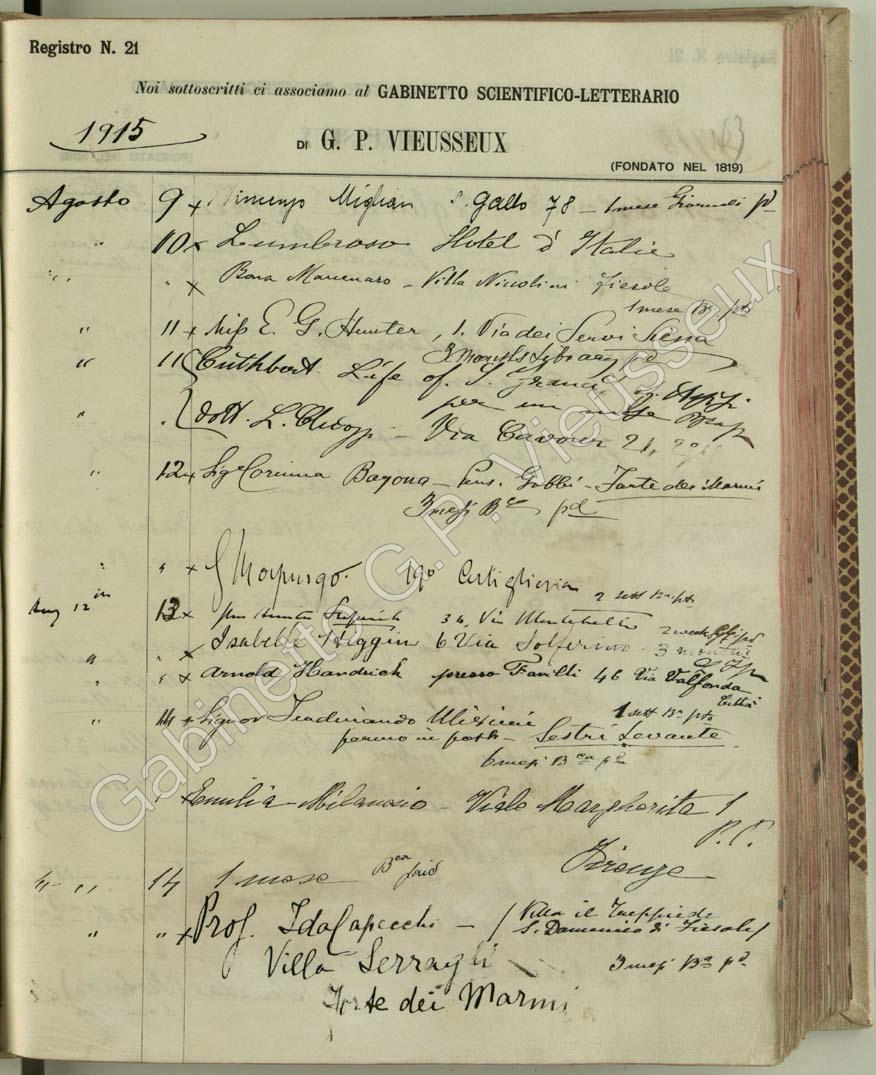 Registro N. 21
Noi sottoscritti ci associamo al GABINETTO SCIENTIFICO-LETTERARIO
1915
DI G. P. VIEUSSEUX
(FONDATO NEL 1819)
Agosto 9 x Vincenzo Migliari S. Gallo 78 - 1 mese Giornali pd
" 10 x Lumbroso Hotel d'Italie
" " x Bona Marcenaro - Villa Niccolini Fiesole
1 mese Ba pto
" 11 x Miss E. G. Hunter, 1. Via dei Servi Siena
3 Months Library pd
" 11 Cuthbert Life of S. Francis of Assisi
per un mese
" . dott. L. - Via Cavour 21,
" 12 x Siga Corinna Bayona - Pens. Gobbi - Forte dei Marmi
3 mesi Bca pd
" " x G Morpurgo. 19o Artiglieria
2 sett Ba pto
Aug 12th 13 x 34, Via Montebello
2 weeks pd
" x Isabella Higgin 6 Via Solferino - 3 months
" " x Arnold Handrick presso Fanilli 46 Via Valfonda
Città
1 sett Ba pto
" 14 x Signor Ferdinando
fermo in posta - Sestri Levante
6 mesi Bca pd
" x Emilia Milanesio - Viale Margherita 1
P. P.
Firenze
" " 14 1 mese Bca paid
" " x Prof. Ida Capecchi - / Villa il Treppiede
S. Domenico di Fiesole /
Villa Serragli
3 mesi Ba pd
Forte dei Marmi
Gabinetto G.P. Vieusseux